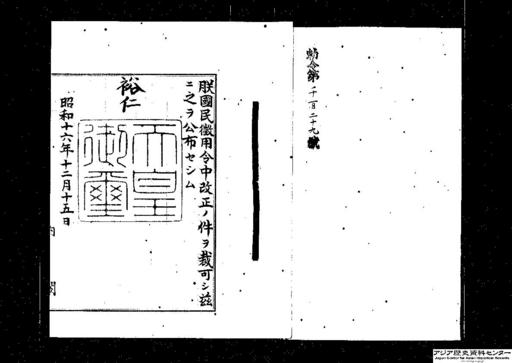 勅令第千百二十九號
朕國民徴用令中改正ノ件ヲ裁可シ茲
ニ之ヲ公布セシム
裕仁
天皇
御璽
昭和十六年十二月十五日
内閣
アジア歴史資料センター
Japan Center for Asian Historical Records